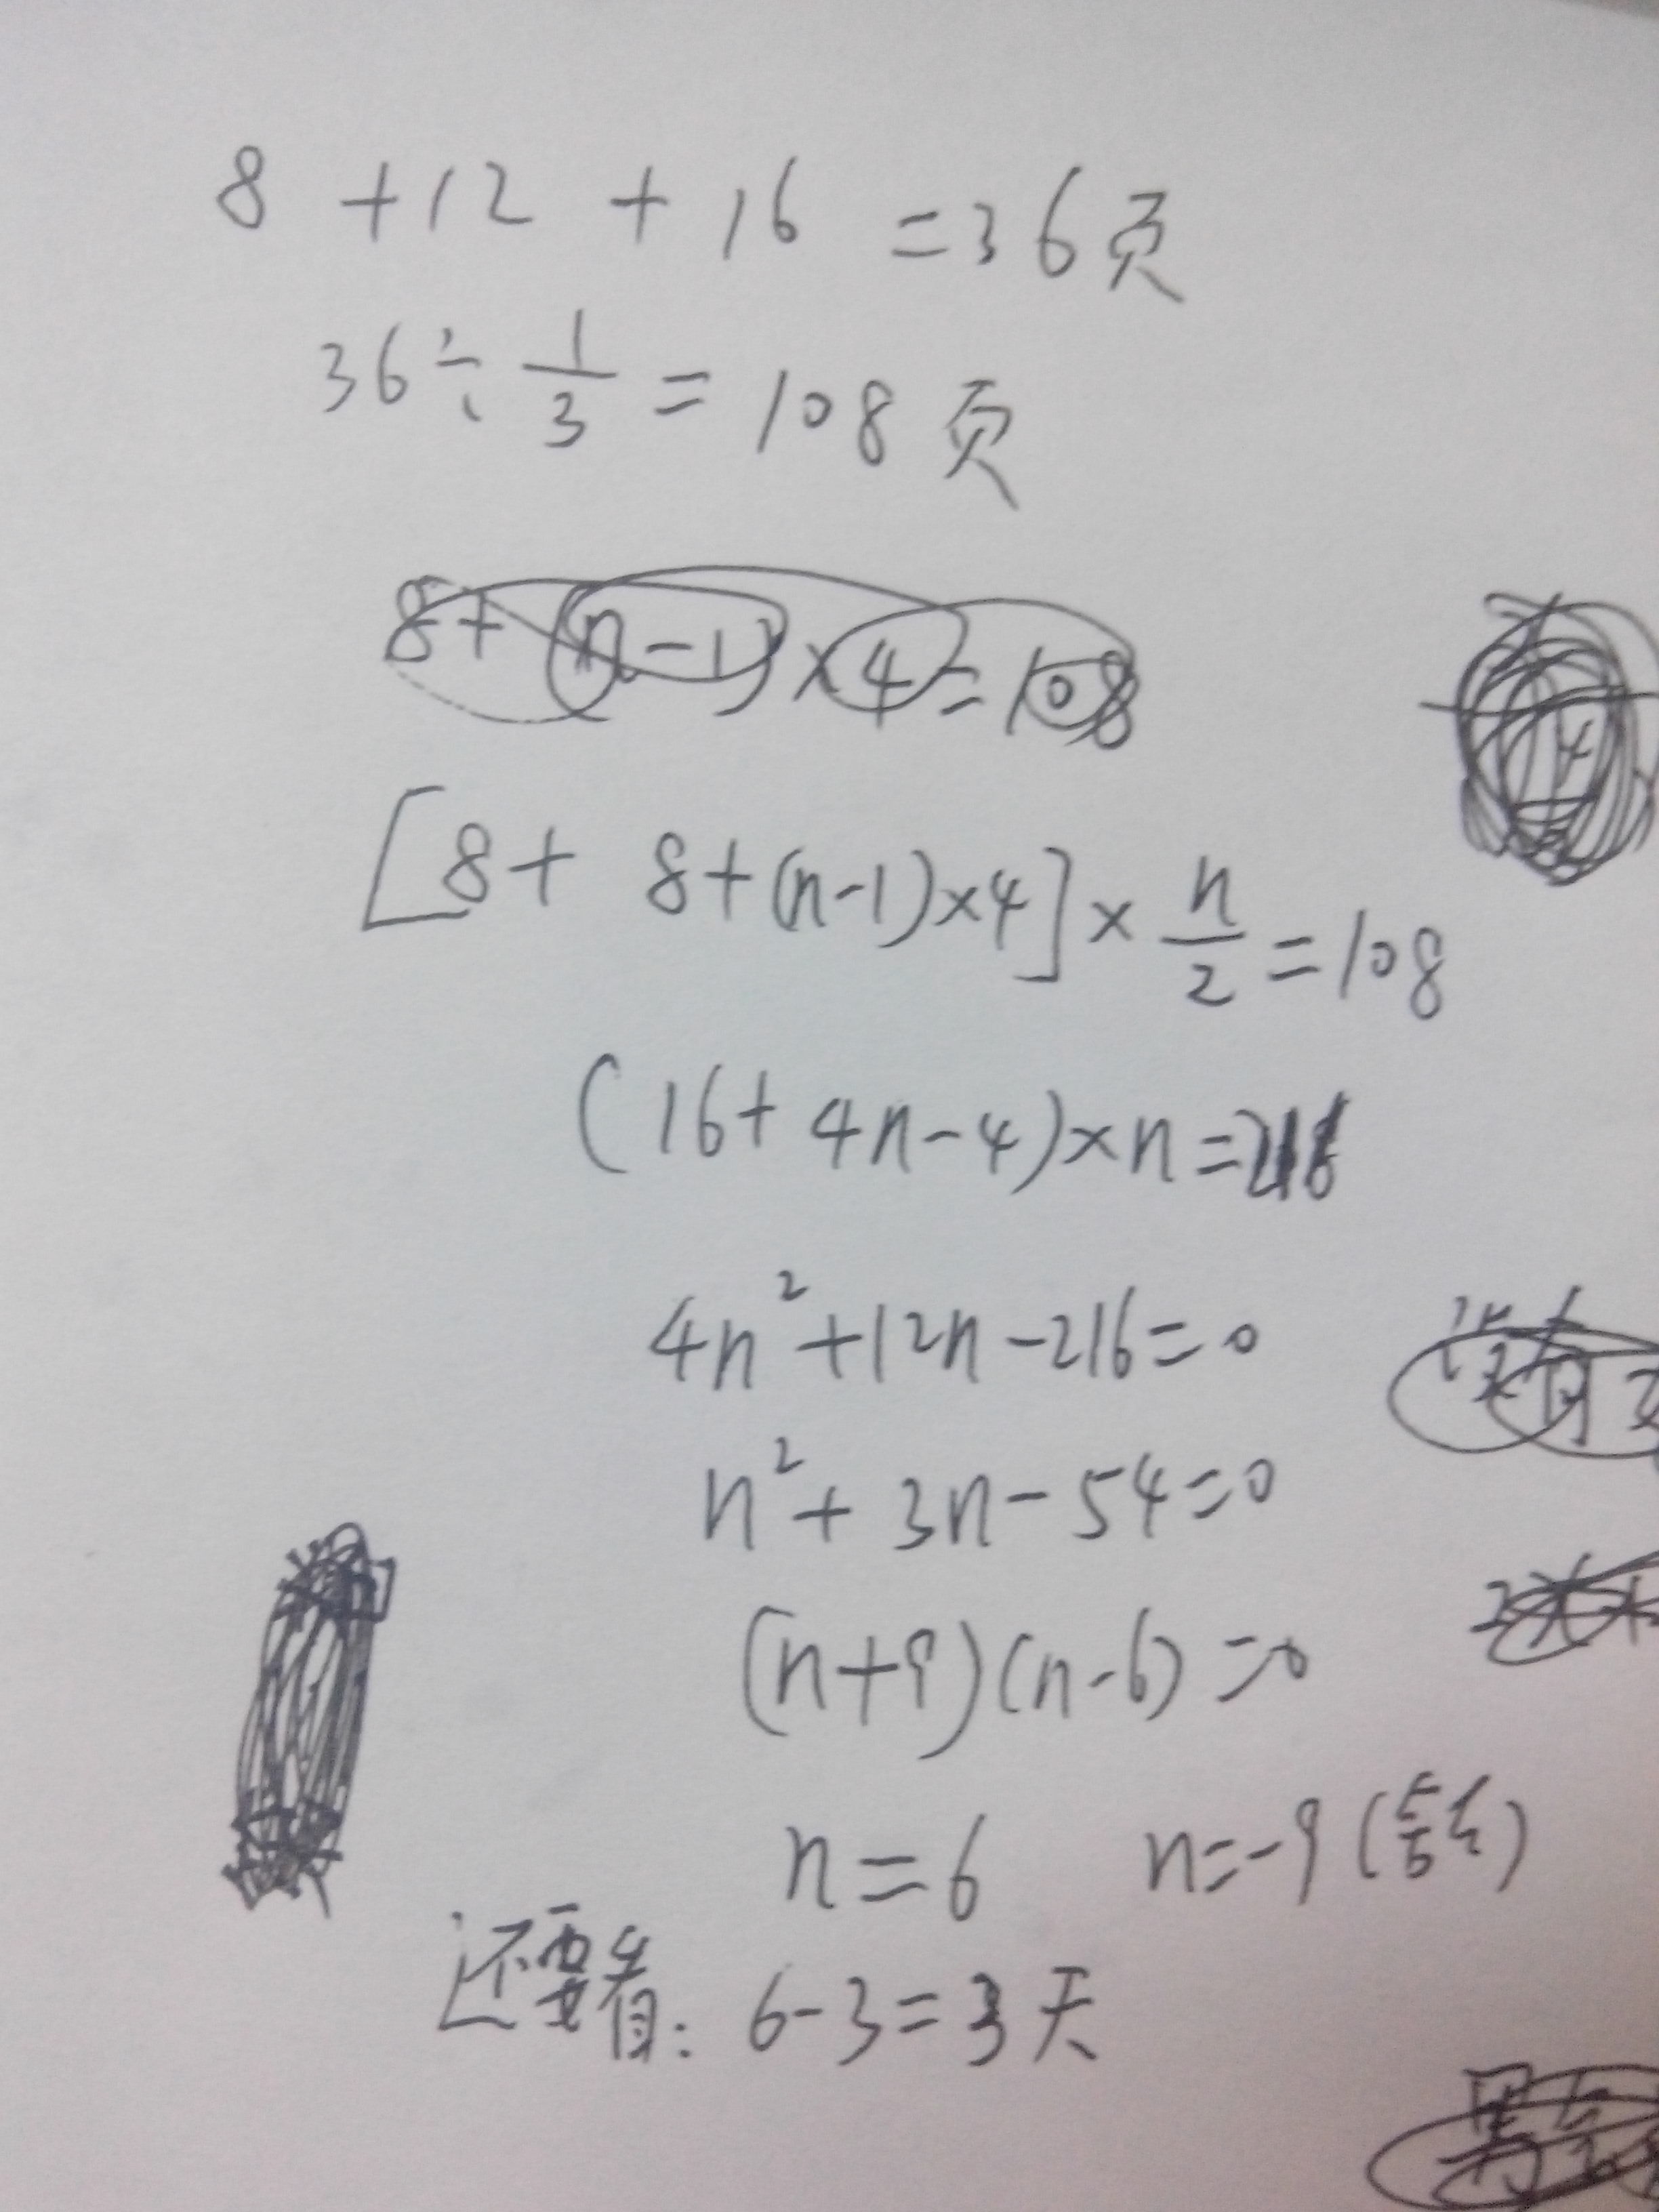 8 + 12 + 16 = 36页
36 ÷ 1/3 = 108页
8+(n-1)×4=108
[8+ 8+(n-1)×4]×n/2=108
(16+4n-4)×n=216
4n²+12n-216=0
n²+3n-54=0
(n+9)(n-6)=0
n=6 n=-9(舍去)
还要看: 6-3=3天